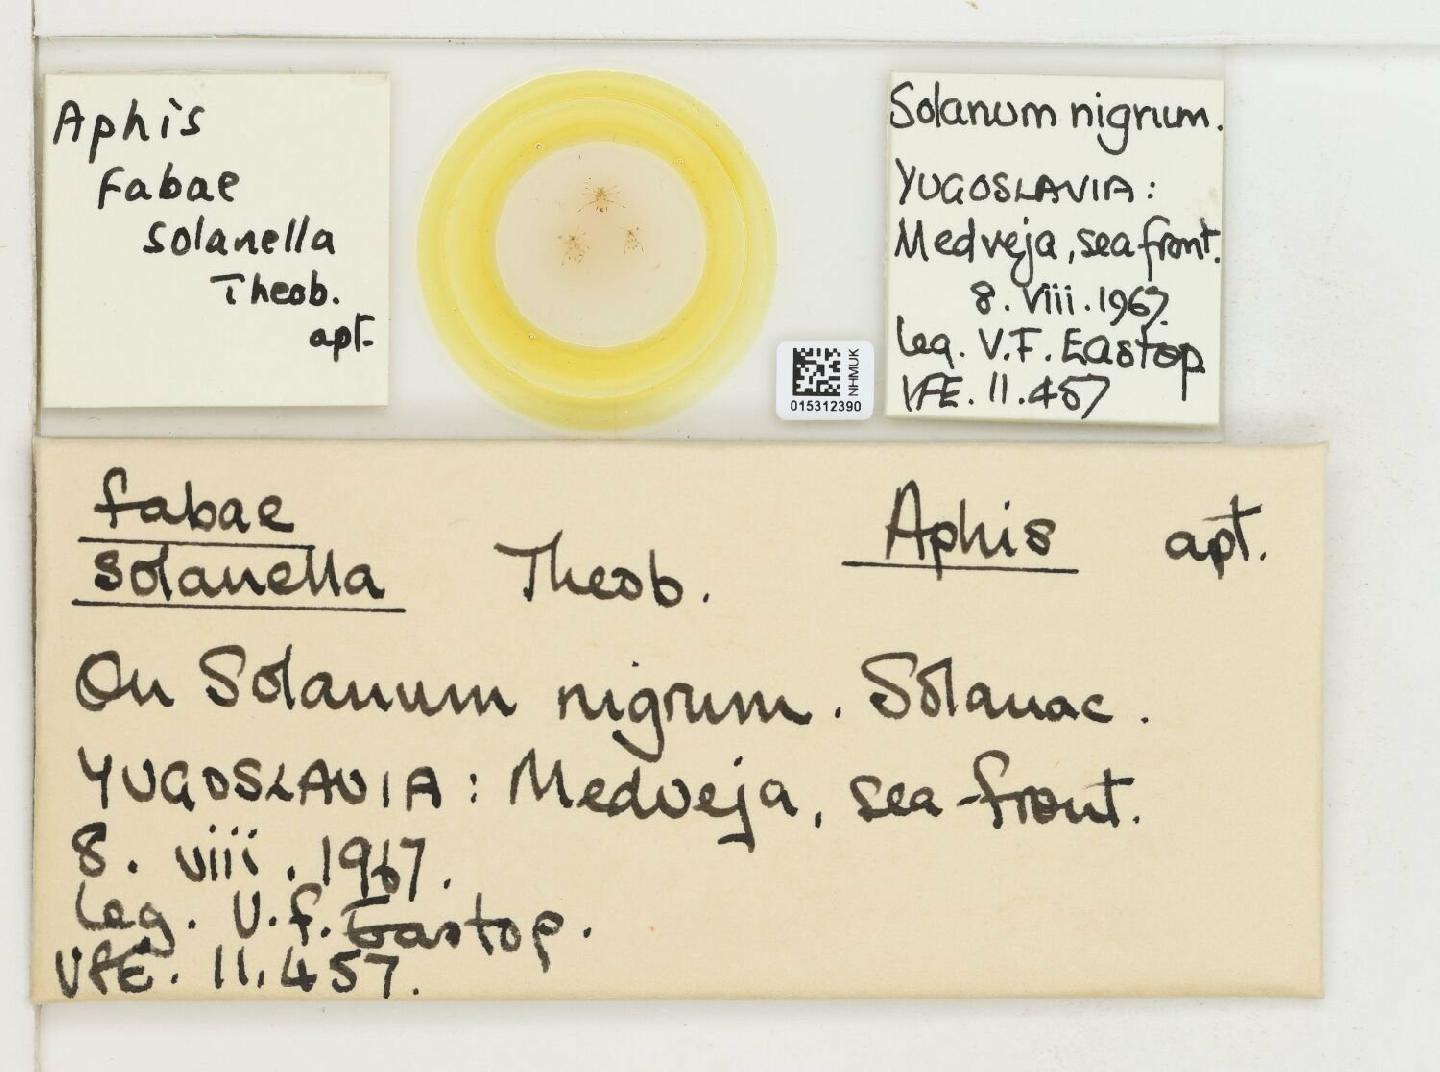 Aphis
fabae
solanella
Theob.
apt.
NHMUK
015312390
Solanum nigrum.
YUGOSLAVIA:
Medveja, sea front.
8. viii. 1967.
leg. V.F. Eastop
VFE. 11.457
fabae
solanella Theob. Aphis apt.
On Solanum nigrum. Solanac.
YUGOSLAVIA: Medveja, sea-front.
8. viii. 1967.
leg. V.F. Eastop.
VFE. 11.457.